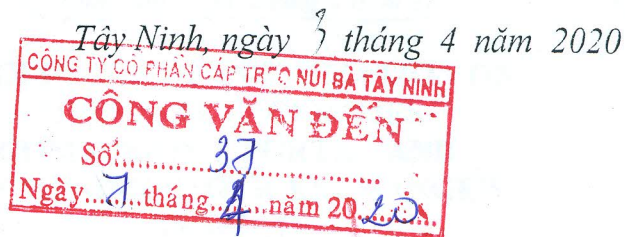 Tây Ninh, ngày tháng 4 năm 2020
CÔNG TY CỔ PHẦN CÁP TREO NÚI BÀ TÂY NINH
CÔNG VĂN ĐẾN
Số:.......37.......
Ngày...7...tháng...4...năm 20.20...